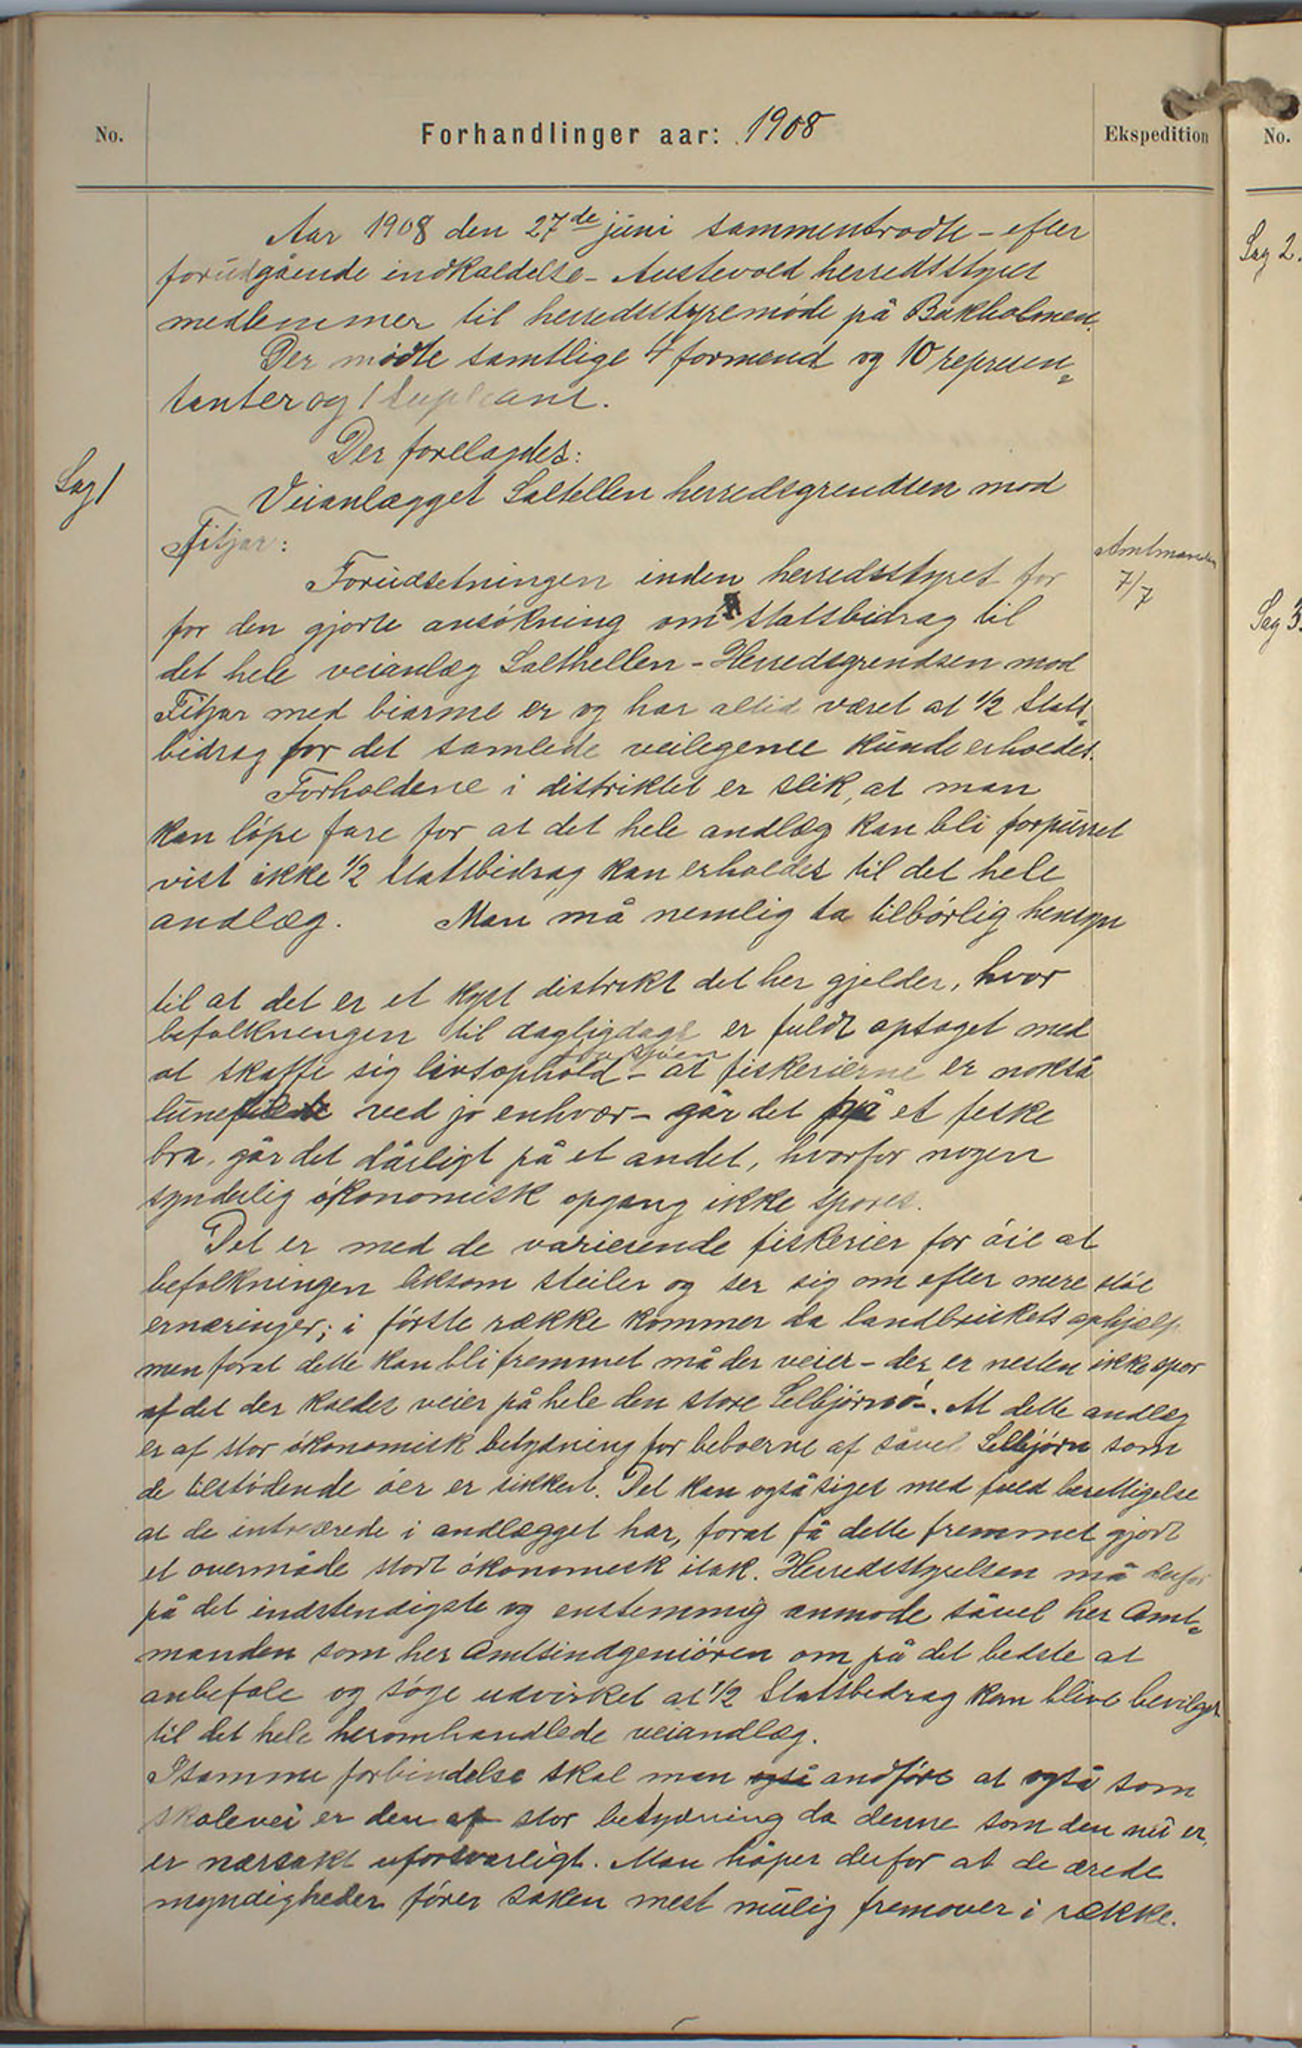 No.
Forhandlinger aar: 1908
Ekspedition
No.
Aar 1908 den 27de juni sammentrådte - efter
forudgående indkaldelse - Austevold herredsstyres
medlemmer til herredsstyremøde på Bakholmen.
Der mødte samtlige 4 formend og 10 represen=
tanter og 1 supleant.
Der forelagdes:
Sag 1
Veianlægget Saltellen herredsgrendsen mod
Fitjar:
Amtmanden
7/7
Forudsetningen inden herredsstyret for
for den gjorte ansøkning om statsbidrag til
det hele veianlæg Salthellen - Herredsgrendsen mod
Fitjar med biarme er og har altid været at 1/2 Stats=
bidrag for det samlede veilegeme kunde erholdes.
Forholdene i distriktet er slik, at man
kan løpe fare for at det hele andlæg kan bli forpurret
vist ikke 1/2 statsbidrag kan erholdes til det hele
andlæg. Man må nemlig ta tilbørlig hensyn
til at det er et kyst distrikt det her gjelder, hvor
befolkningen til dagligdags er fuldt optaget med
at skaffe sig livsophold - at fiskerierne er nokså
sjøen
ved jo enhver - går det på et fiske
bra, går det dårligt på et andet, hvorfor nogen
synderlig økonomisk opgang ikke spores.
Det er med de varierende fiskerier for øie at
befolkningen liksom steiler og ser sig om efter mere støe
ernæringer; i første række kommer da landbrukets ophjælp
men forat dette kan bli fremmet må der veier - der er nesten ikke spor
af det der kaldes veier på hele den store Selbjørnsø -. At dette andlæg
er af stor økonomisk betydning for beboerne af såvel Selbjørn som
de tilstødende øer er sikkert. Det kan også siges med fuld berettigelse
at de intreserede i andlægget har, forat få dette fremmet gjort
et overmåde stort økonomisk itak. Herredsstyrelsen må derfor
på det indstendigste og enstemmig anmode såvel her Amt=
manden som her Amtsindgeniøren om på det bedste at
anbefale og søge udvirket at 1/2 Statsbidrag kan blive bevilget
til det hele heromhandlede veiandlæg.
I samme forbindelse skal man også andføre at også som
skolevei er den af stor betydning da denne som den nu er,
er nærsakt uforsvarligt. Man håper derfor at de ærede
myndigheder fører saken mest mulig fremover i række.
Sag 2.
Sag 3.